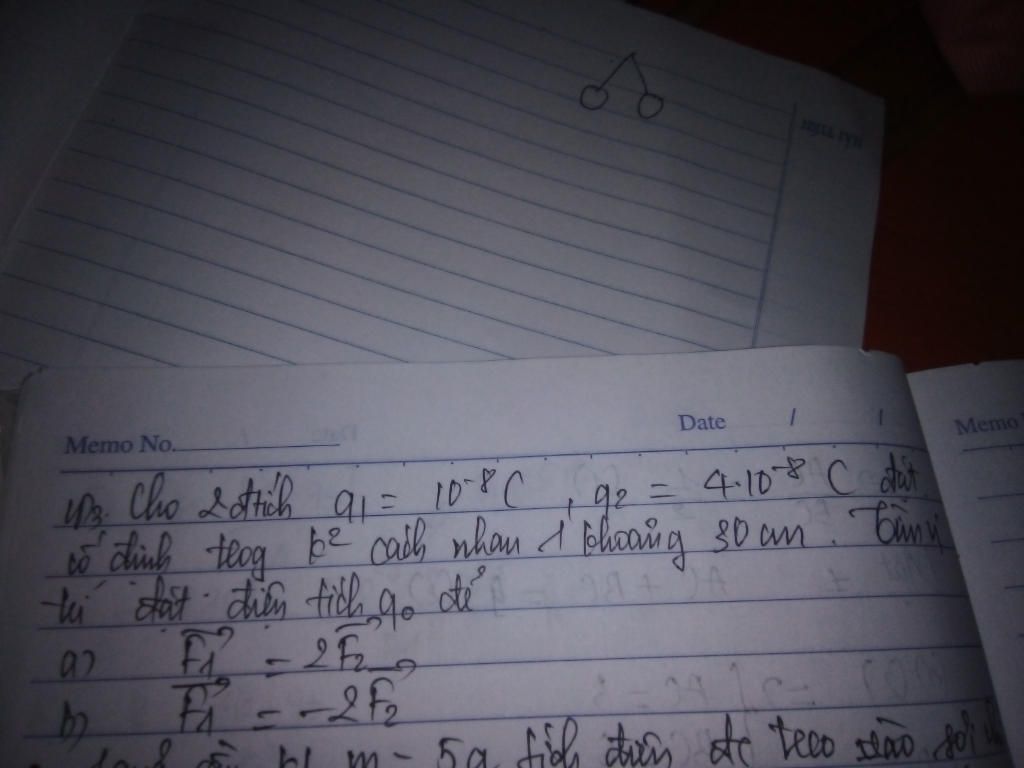 Memo No.
Date / /
Memo
Cho 2 đtích q1 = 10^-8 C , q2 = 4.10^-8 C đặt
cố định trog k² cách nhau 1 khoảng 30 cm . Tìm vị
trí đặt điện tích q0 để
a) F1 = 2F2
b) F1 = -2F2
m = 5g tích điện đc treo vào sợi